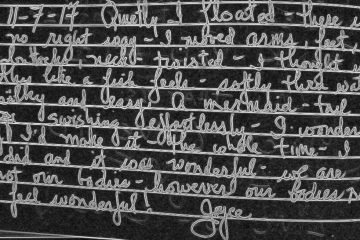 11-7-77 Quietly I floated - there
no right way - I used arms, feet
neck, twisted - I thought
like a fish - softly
silky and easy. A mermaid - true
swishing effortlessly - I wonder
if I'd make it the whole time - I
did and it was wonderful - we are
not our bodies - however our bodies
feel wonderful!
Joyce